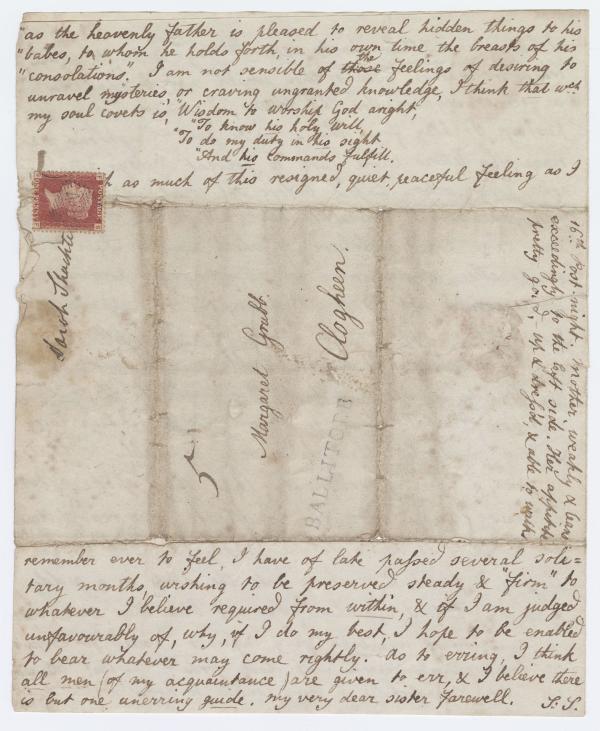 "as the heavenly father is pleased to reveal hidden things to his
"babes, to whom he holds forth, in his own time the breasts of his
"consolations". I am not sensible of those the feelings of desiring to
unravel mysteries or craving ungranted knowledge, I think that wch
my soul covets is, "Wisdom to worship God aright,
"To know his holy will,
"To do my duty in his sight
"And his commands fulfill.
as much of this resigned, quiet, peaceful feeling as I
Sarah
Margaret Grubb.
Clogheen.
BALLITORE
5
16th Post-night. Mother weakly & leans
exceedingly to the left side. Her appetite
pretty good, up & dress'd, & able to walk
remember ever to feel, I have of late passed several soli=
tary months, wishing to be preserved steady & "firm" to
whatever I believe required from within, & if I am judged
unfavourably of, why, if I do my best, I hope to be enabled
to bear whatever may come rightly. As to erring, I think
all men (of my acquaintance) are given to err, & I believe there
is but one unerring guide. my very dear sister farewell. S:S.